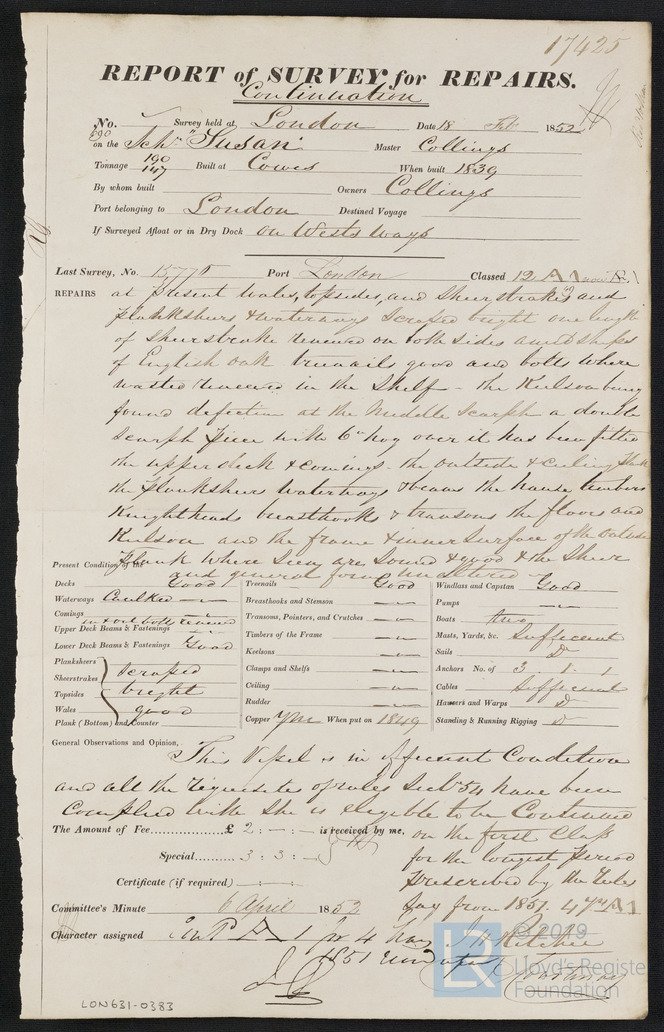 17425
REPORT of SURVEY for REPAIRS.
Continuation
No. Survey held at London Date 18 Feb 1852
on the Schr "Susan" Master Collings
Tonnage 190 147 Built at Cowes When built 1839
By whom built Owners Collings
Port belonging to London Destined Voyage
If Surveyed Afloat or in Dry Dock on Wests ways
Last Survey, No. Port London Classed 12 A1
REPAIRS at present wales, topsides, and sheerstrakes and
planksheers & waterways scraped bright one length
of sheerstrake renewed on both sides amidships
of English oak treenails good and bolts where
wasted renewed in the shelf - the Keelson being
found defective at the middle scarph a double
scarph piece with 6in hog over it has been fitted
the upper deck & comings - the outside & ceiling plank
the planksheers waterways & beams the hawse timbers
Knightheads breasthooks & transoms the floors and
Keelson and the frame & inner surface of the outside
plank where seen are sound & good & the sheer
and general form unaltered
Present Condition of the
Decks Good
Waterways Caulked
Comings
in & out bolts renewed
Upper Deck Beams & Fastenings
Lower Deck Beams & Fastenings Good
Planksheers
Sheerstrakes
Topsides
Wales
scraped
bright
good
Plank (Bottom) and Counter
Treenails Good
Breasthooks and Stemson
Transoms, Pointers, and Crutches
Timbers of the Frame
Keelsons
Clamps and Shelfs
Ceiling
Rudder
Copper YM When put on 1849
Windlass and Capstan Good
Pumps
Boats two
Masts, Yards, &c. Sufficient
Sails Do
Anchors No. of 3 . 1 . 1
Cables Sufficient
Hawsers and Warps Do
Standing & Running Rigging Do
General Observations and Opinion,
This Vessel is in efficient Condition
and all the requisites of rules Sectn 54 have been
complied with she is eligible to be Continued
on the first Class
for the longest period
prescribed by the Rules
say from 1851. 4 yrs A1
The Amount of Fee £ 2 : - : - is received by me,
Special 3 : 3 : -
Certificate (if required)
Committee's Minute 6 April 1852
Character assigned Cont A 1 for 4 Yrs
J. H. Ritchie
LON631-0383
© 2019
LR
Lloyd's Register
Foundation